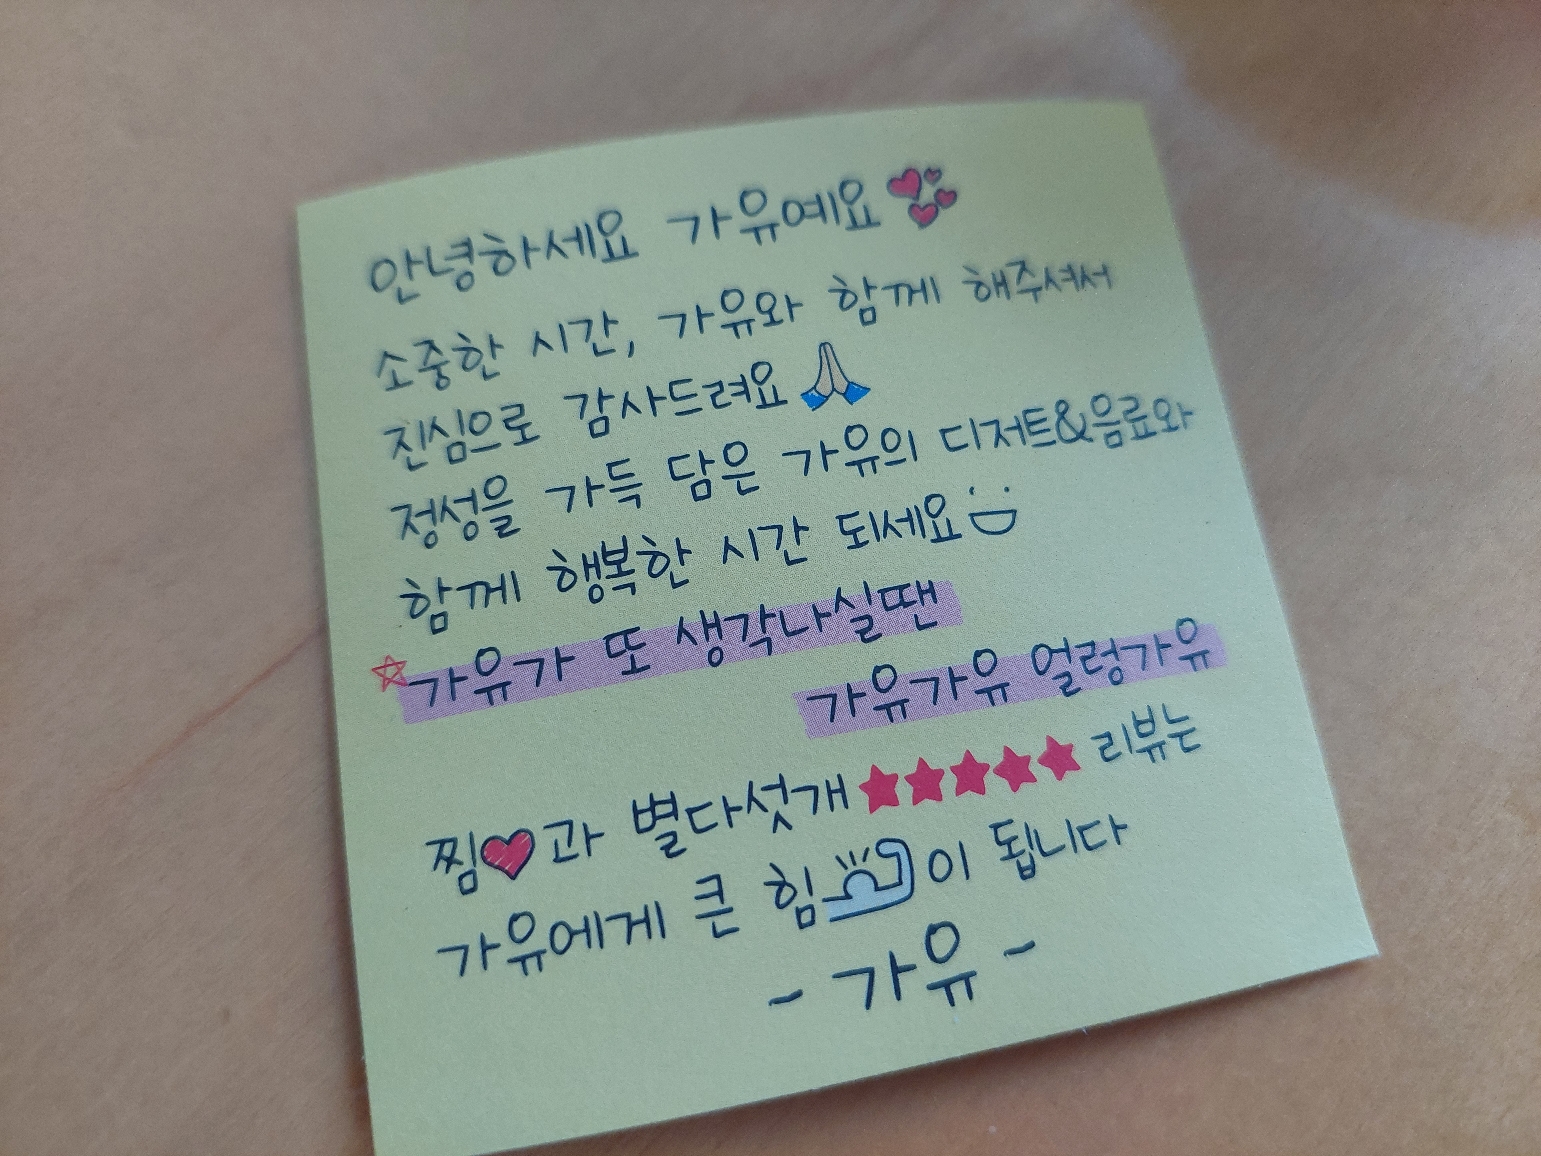 안녕하세요 가유예요💕
소중한 시간, 가유와 함께 해주셔서
진심으로 감사드려요🙏
정성을 가득 담은 가유의 디저트&음료와
함께 행복한 시간 되세요
☆가유가 또 생각나실땐
가유가유 얼렁가유
찜♥과 별다섯개★★★★★ 리뷰는
가유에게 큰 힘💪이 됩니다
- 가유 -